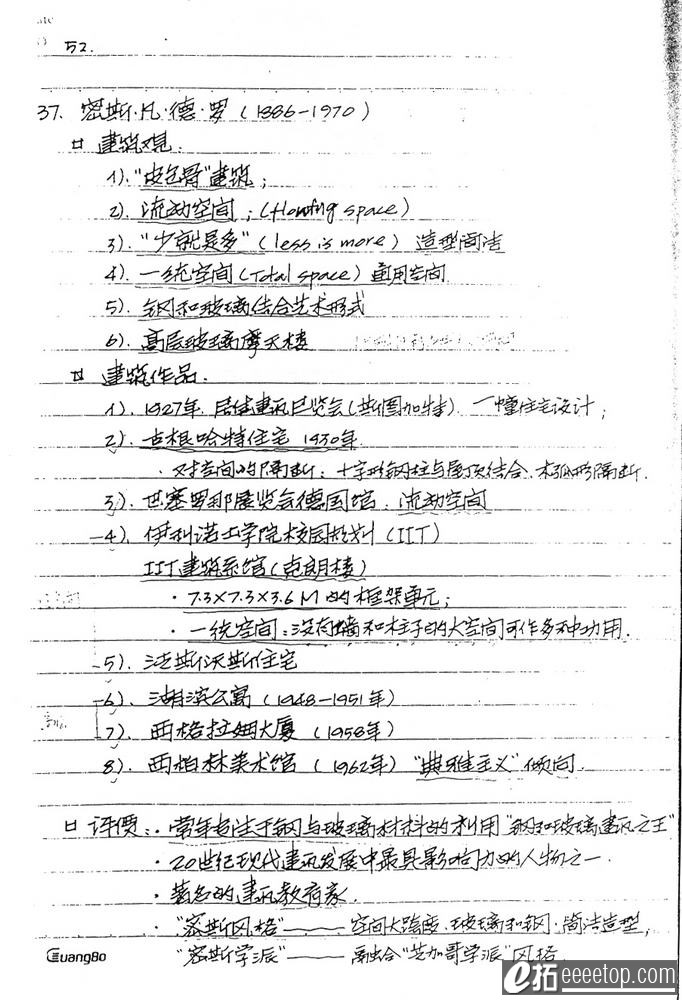 52.
37. 密斯·凡·德·罗 (1886-1970)
建筑观.
1). "皮包骨"建筑;
2). 流动空间; (flowing space)
3). "少就是多" (less is more) 造型简洁
4). 一统空间 (Total space) 通用空间
5). 钢和玻璃结合艺术形式
6). 高层玻璃摩天楼
建筑作品.
1). 1927年. 居住建筑展览会(斯图加特). 一幢住宅设计;
2). 吉根哈特住宅 1930年.
· 对空间的隔断: 十字形钢柱与屋顶结合. 木弧形隔断.
3). 巴塞罗那展览会德国馆. 流动空间
4). 伊利诺工学院校园规划 (IIT)
IIT建筑系馆(克朗楼)
· 7.3×7.3×3.6M的框架单元;
· 一统空间: 没有墙和柱子的大空间可作多种功用.
5). 法斯沃斯住宅
6). 湖滨公寓 (1948-1951年)
7). 西格拉姆大厦 (1958年)
8). 西柏林美术馆 (1962年) "典雅主义"倾向.
评价: · 常年专注于钢与玻璃材料的利用"钢和玻璃建筑之王"
· 20世纪现代建筑发展中最具影响力的人物之一.
· 著名的建筑教育家.
· "密斯风格"—— 空间大跨度. 玻璃和钢. 简洁造型,
"密斯学派"—— 融合"芝加哥学派"风格.
GuangBo
e拓 eeeetop.com